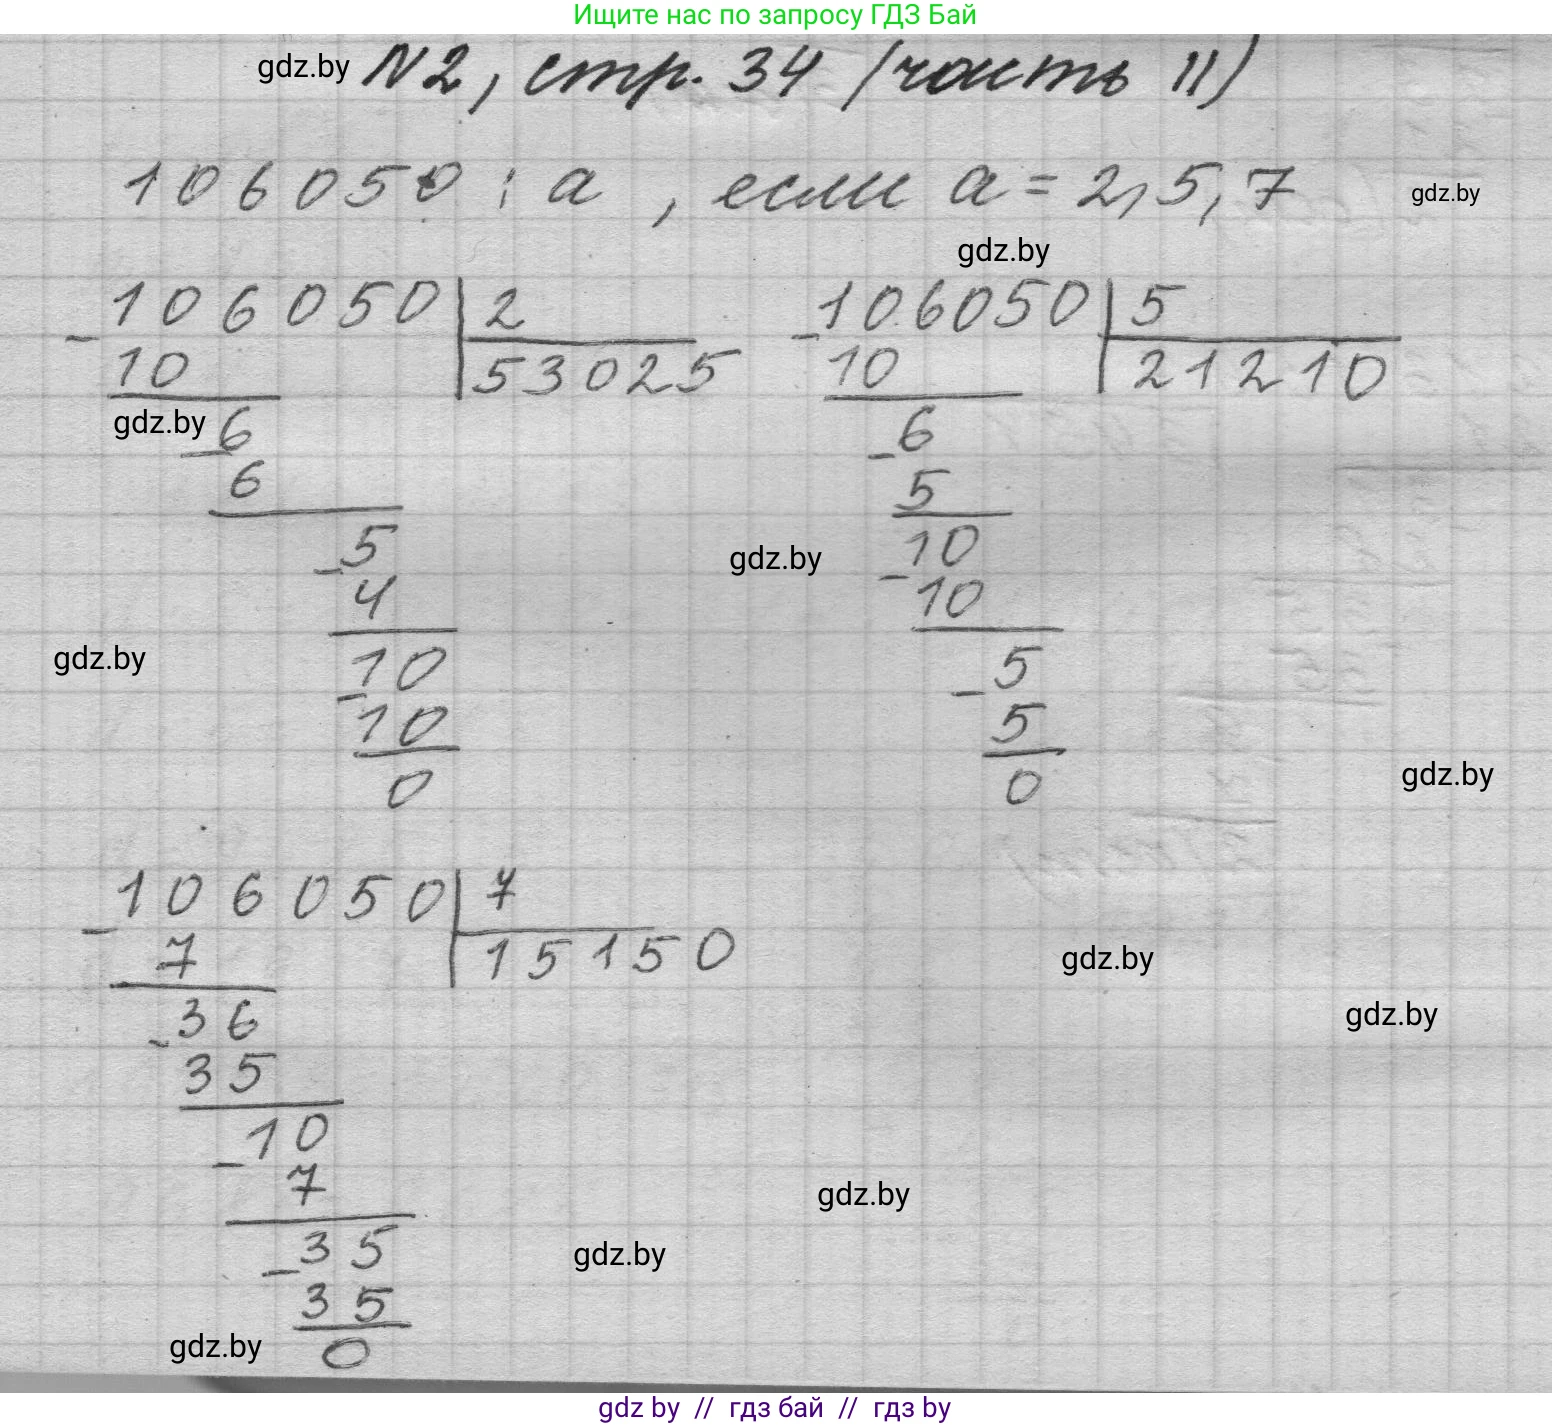 Ищите нас по запросу ГДЗ Бай
gdz.by N2, стр. 34 (часть II)
106050 : а , если а = 2, 5, 7 gdz.by
gdz.by
106050 | 2
- 10
53025
gdz.by 6
- 6
5
- 4
10
- 10
0
106050 | 5
- 10
21210
6
- 5
gdz.by
10
- 10
5
- 5
0
gdz.by
gdz.by
106050 | 7
- 7
15150
36
- 35
10
- 7
35
- 35
0
gdz.by
gdz.by
gdz.by
gdz.by
gdz.by
gdz by // гдз бай // гдз by